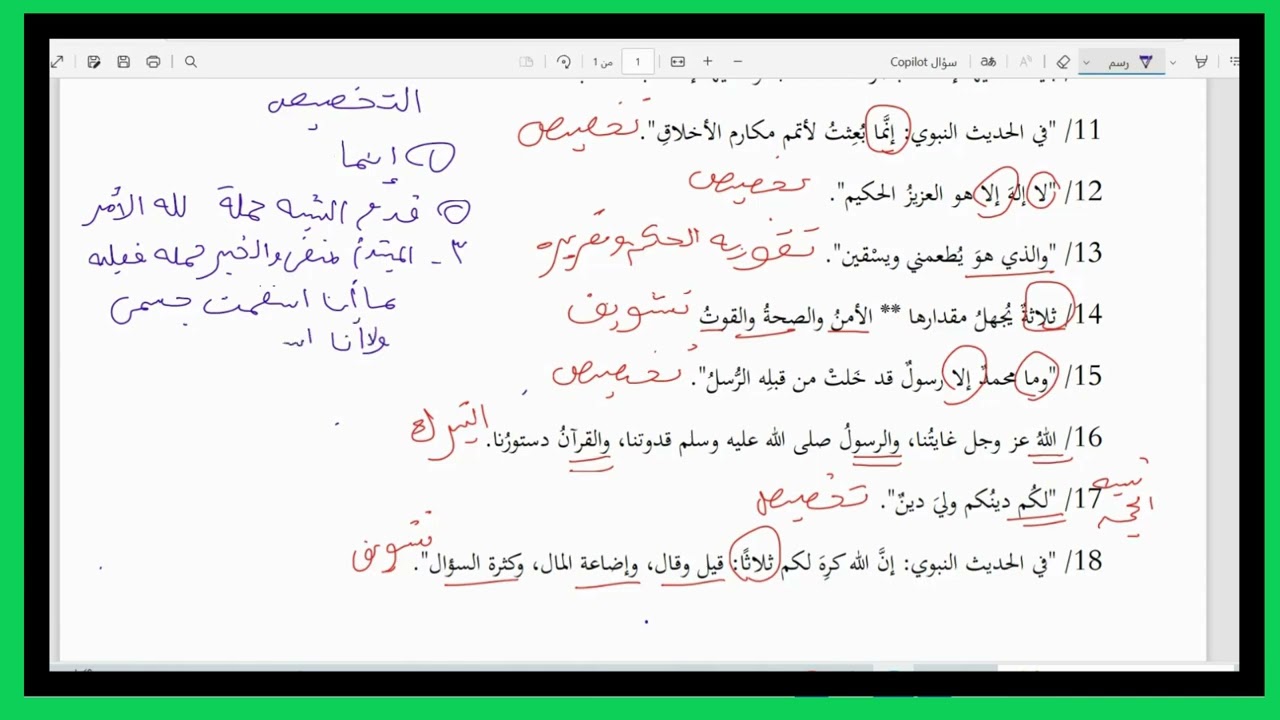 سؤال Copilot
رسم
1
من 1
11/ "في الحديث النبوي: إنَّما بُعِثتُ لأتمم مكارم الأخلاقِ". تخصيص
12/ "لا إلهَ إلا هو العزيزُ الحكيم". تخصيص
13/ "والذي هوَ يُطعمني ويسْقين". تقوية الحكم وتقريره
14/ ثلاثةٌ يُجهلُ مقدارها ** الأمنُ والصحةُ والقوتُ تشويق
15/ "وما محمدٌ إلا رسولٌ قد خَلتْ من قبلِه الرُّسلُ". تخصيص
16/ اللهُ عز وجل غايتُنا، والرسولُ صلى الله عليه وسلم قدوتنا، والقرآنُ دستورُنا. التبرك
17/ "لكُم دينُكم وليَ دينٌ". تخصيص
18/ "في الحديث النبوي: إنَّ الله كرِهَ لكم ثلاثًا: قيل وقال، وإضاعة المال، وكثرة السؤال". تشويق
التخصيص
① إنما
② قدم الشبه جملة لله الأمر
٣ - المبتدأ منفي والخبر جملة فعلية
ما أنا اسقمت جسمي
ولا أنا